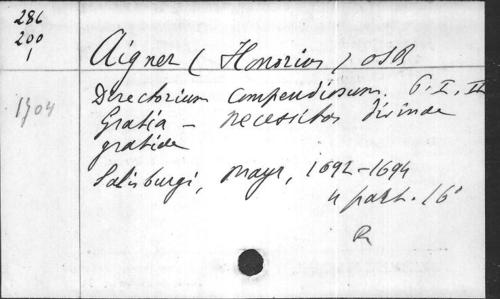 286
200
1
Aigner (Honorius) OSB
1704
Directorium compendiosum. T. I, II
Gratia - necessitas divinae
gratiae
Salisburgi, Mayr, 1692-1694
4 part. 16°
R